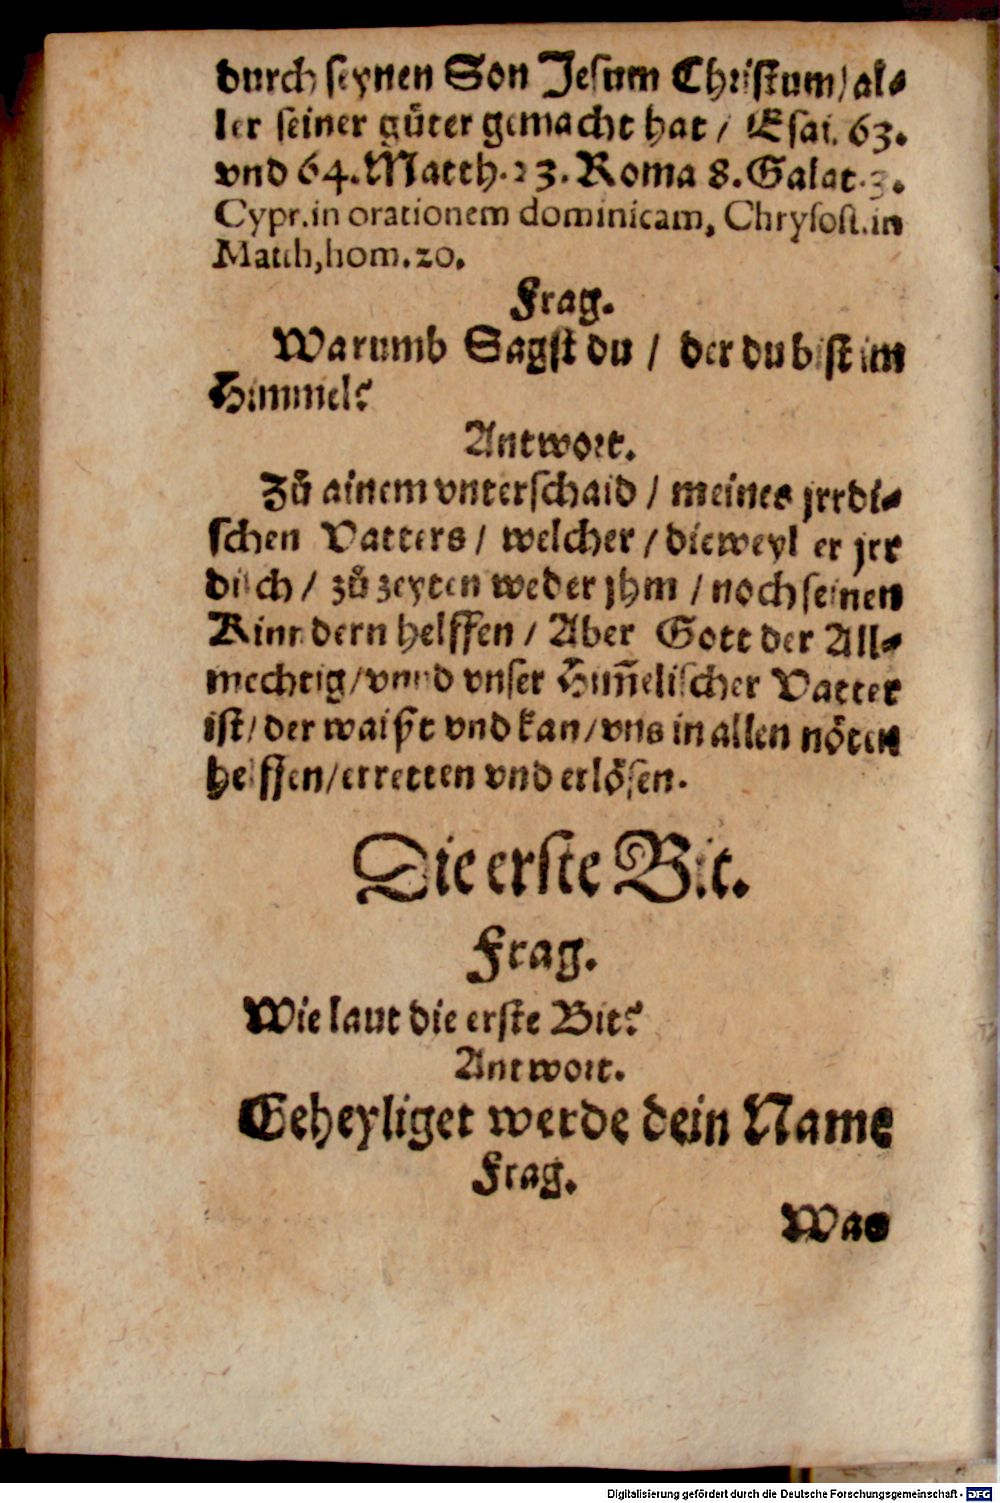 durch seynen Son Jesum Christum/ al⸗
ler seiner gůter gemacht hat / Esai. 63.
vnd 64. Matth. 23. Roma 8. Galat. 3.
Cypr. in orationem dominicam, Chrysost. in
Matth, hom. 20.
Frag.
Warumb Sagst du / der du bist im
Himmel?
Antwort.
Zů ainem vnterschaid / meines jrrdi⸗
schen Vatters / welcher / dieweyl er jrr
disch / zů zeyten weder jhm / noch seinen
Kinndern helffen / Aber Gott der All⸗
mechtig / vnnd vnser Him̃elischer Vatter
ist / der waißt vnd kan / vns in allen nöten
helffen / erretten vnd erlösen.
Die erste Bit.
Frag.
Wie laut die erste Bit?
Antwort.
Geheyliget werde dein Name
Frag.
Was
Digitalisierung gefördert durch die Deutsche Forschungsgemeinschaft - DFG